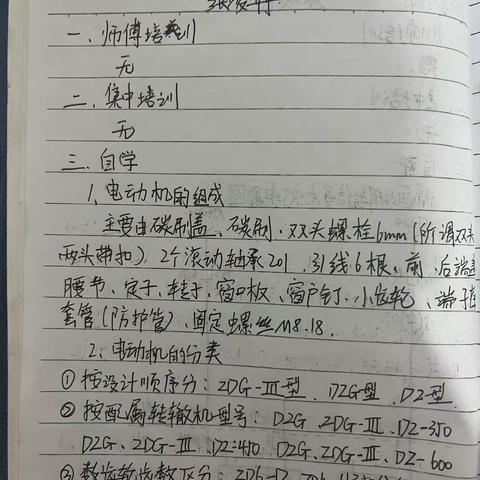 一、师傅培训
无
二、集中培训
无
三、自学
1、电动机的组成
主要由碳刷盖、碳刷、双头螺栓6mm(所谓双头
两头带扣)、2个滚动轴承201、引线6根、前、后端盖
腰节、定子、转子、窗口板、窗户钉、小齿轮、端子座
套管(防护管)、固定螺丝M8.18.
2、电动机的分类
①按设计顺序分:ZDG-Ⅲ型、DZG型、DZ型
②按配属转辙机型号:DZG、ZDG-Ⅲ、DZ-350
DZG、ZDG-Ⅲ、DZ-450 DZG、ZDG-Ⅲ、DZ-600
③数齿轮齿数区分:ZD6-D